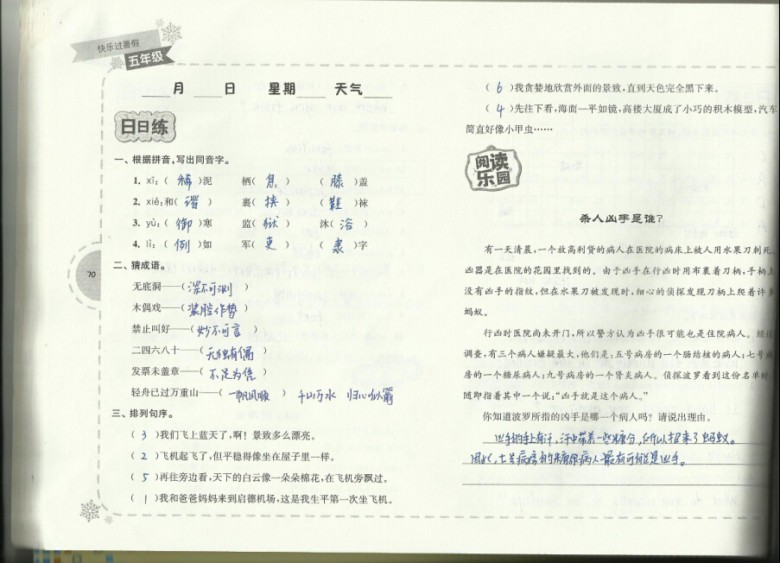 快乐过暑假
五年级
月 日 星期 天气
日日练
一、根据拼音,写出同音字。
1. xī:( 稀 )泥 栖( 息 ) ( 膝 )盖
2. xié:和( 谐 ) 裹( 挟 ) ( 鞋 )袜
3. yù:( 御 )寒 监( 狱 ) 沐( 浴 )
4. lì:( 例 )如 军( 吏 ) ( 隶 )字
二、猜成语。
无底洞——( 深不可测 )
木偶戏——( 装腔作势 )
禁止叫好——( 妙不可言 )
二四六八十——( 无独有偶 )
发票未盖章——( 不足为凭 )
轻舟已过万重山——( 一帆风顺 ) 千山万水 归心似箭
三、排列句序。
( 3 )我们飞上蓝天了,啊!景致多么漂亮。
( 2 )飞机起飞了,但平稳得像坐在屋子里一样。
( 5 )再往旁边看,天下的白云像一朵朵棉花,在飞机旁飘过。
( 1 )我和爸爸妈妈来到启德机场,这是我生平第一次坐飞机。
70
( 6 )我贪婪地欣赏外面的景致,直到天色完全黑下来。
( 4 )先往下看,海面一平如镜,高楼大厦成了小巧的积木模型,汽车
简直好像小甲虫……
阅读乐园
杀人凶手是谁?
有一天清晨,一个放高利贷的病人在医院的病床上被人用水果刀刺死。
凶器是在医院的花园里找到的。由于凶手在行凶时用布裹着刀柄,手柄上
没有凶手的指纹,但在水果刀被发现时,细心的侦探发现刀柄上爬着许多
蚂蚁。
行凶时医院尚未开门,所以警方认为凶手很可能也是住院病人。经
调查,有三个病人嫌疑最大,他们是:五号病房的一个肠结核的病人;七号病
房的一个糖尿病人;九号病房的一个肾炎病人。侦探波罗看到这份名单时,
随即指着其中一个说:“凶手就是这个病人。”
你知道波罗所指的凶手是哪一个病人吗?请说出理由。
凶手的手上有汗,汗中带着一些糖分,所以招来了蚂蚁。
因此,七号病房的糖尿病人最有可能是凶手。